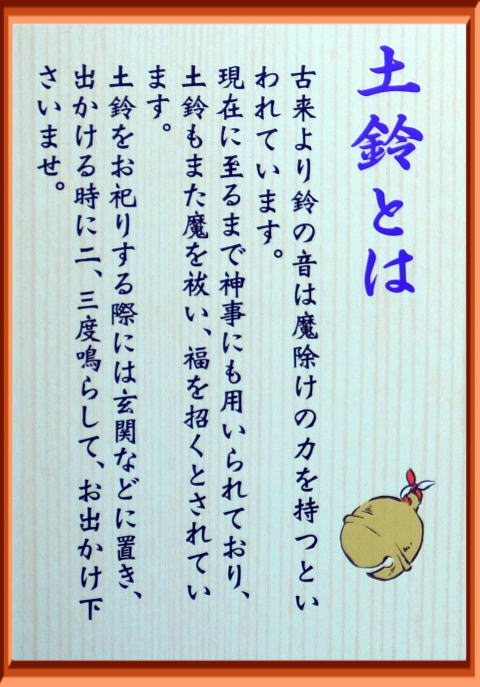 土鈴とは
古来より鈴の音は魔除けの力を持つとい
われています。
現在に至るまで神事にも用いられており、
土鈴もまた魔を祓い、福を招くとされてい
ます。
土鈴をお祀りする際には玄関などに置き、
出かける時に二、三度鳴らして、お出かけ下
さいませ。